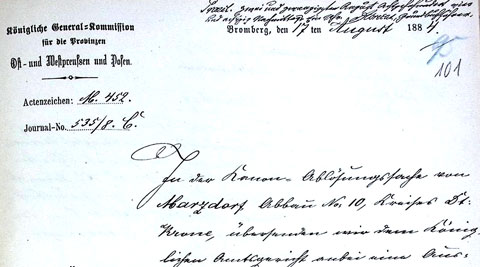 Präs. zwei und zwanzigsten August Achtzehnhundert vier
und achtzig Nachmittags
Königliche General-Kommission
für die Provinzen
Ost- und Westpreussen und Posen.
Bromberg, den 17 ten August 1884.
101
Actenzeichen: M. 452.
Journal-No. 535/8. C.
In der Kanon- Ablösungssache von
Marzdorf Abbau No. 10, Kreises Dt.
Krone, übersenden wir dem König-
lichen Amtsgericht anbei eine Aus-